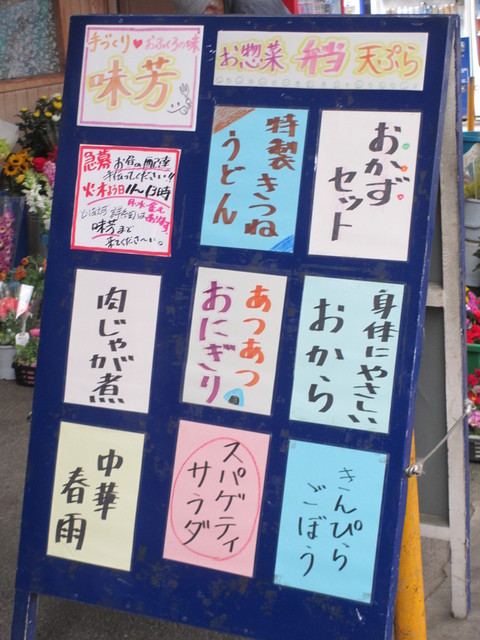 手づくり♥おふくろの味
味芳
お惣菜 弁当 天ぷら
急募 お昼の配達
手伝ってください!!
火・木よう日 11〜13時
味芳まで
来てくださ〜い。
特製きつね
うどん
おかず
セット
肉じゃが煮
あつあつ
おにぎり
身体にやさしい
おから
中華
春雨
スパゲティ
サラダ
きんぴら
ごぼう